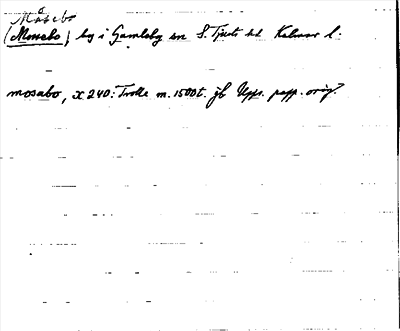 Måsebo
(Mosebo) by i Gamleby sn S. Tjust hd Kalmar l.
mosabo, x 240: Trolle m. 1500t. jb Upps. papp. orig.